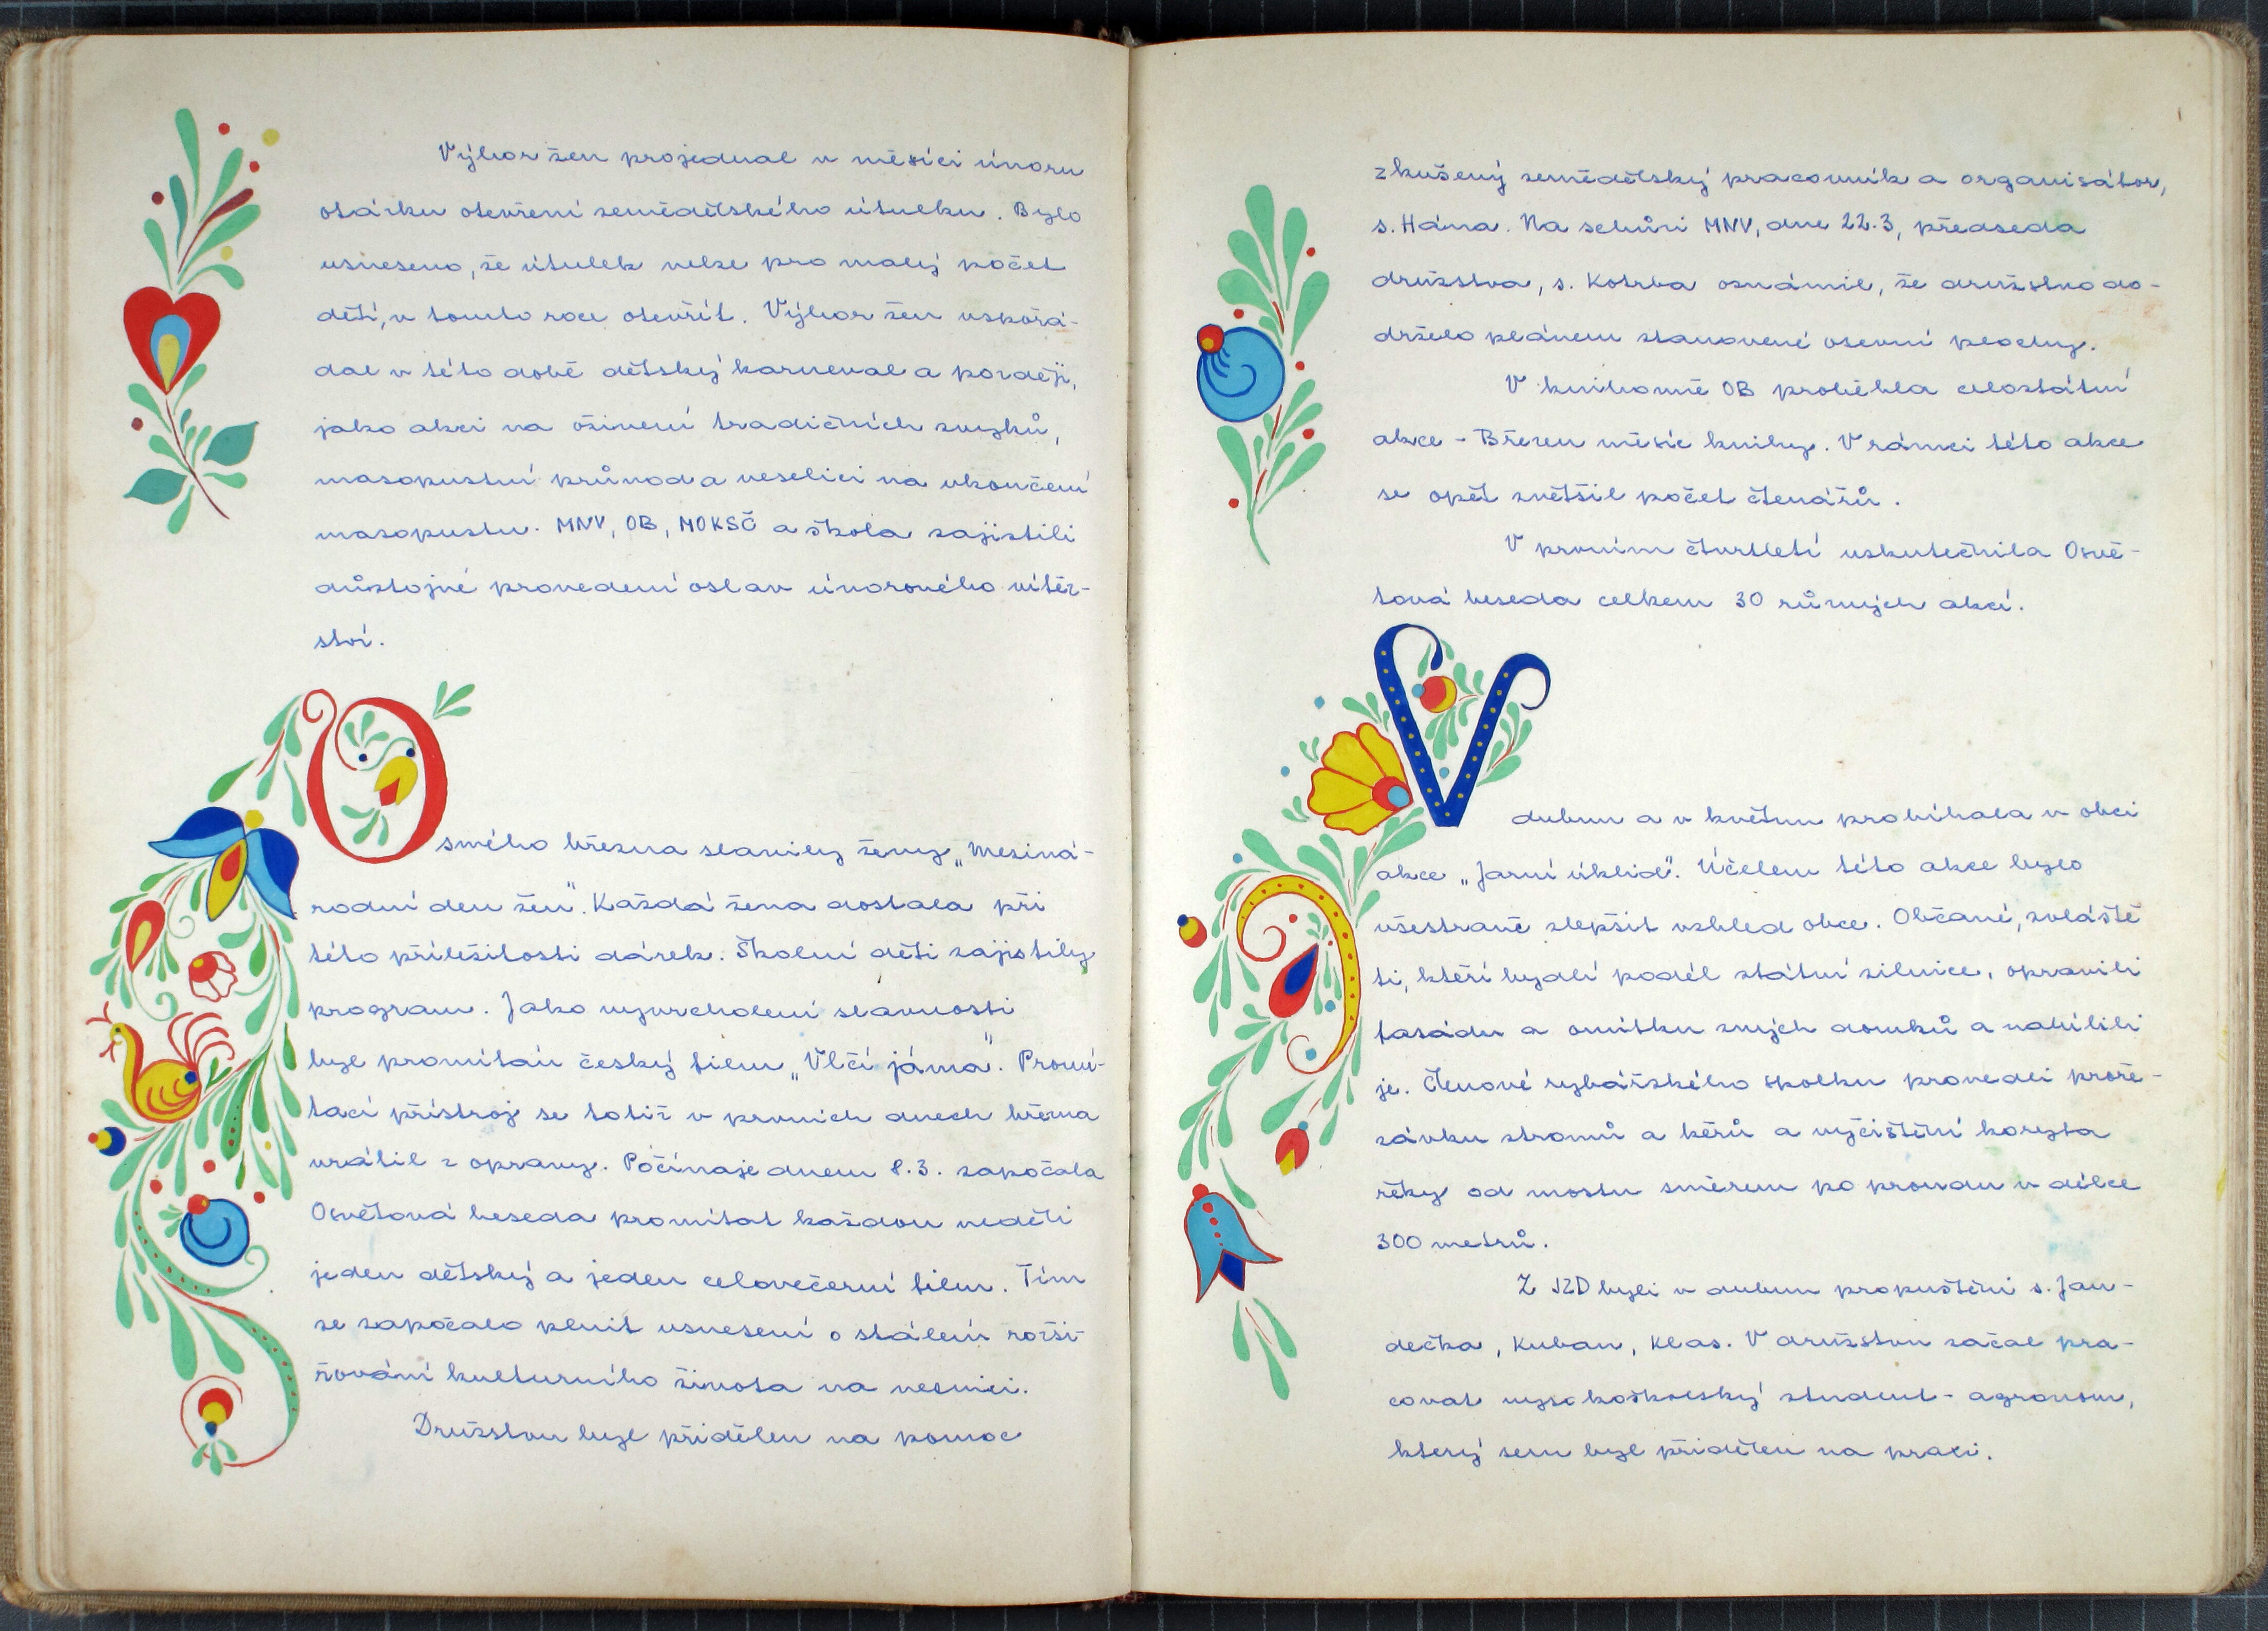 Výbor žen projednal v měsíci únoru
otázku otevření zemědělského útulku. Bylo
usneseno, že útulek nelze pro malý počet
dětí, v tomto roce otevřít. Výbor žen uspořá-
dal v této době dětský karneval a později,
jako akci na oživení tradičních zvyků,
masopustní průvod a veselici na ukončení
masopustu. MNV, OB, MOKSČ a škola zajistili
důstojné provedení oslav únorového vítěz-
ství.
Osmého března slavily ženy „Meziná-
rodní den žen". Každá žena dostala při
této příležitosti dárek. Školní děti zajistily
program. Jako vyvrcholení slavnosti
byl promítán český film „Vlčí jáma". Promí-
tací přístroj se totiž v prvních dnech března
vrátil z opravy. Počínaje dnem 8.3. započala
Osvětová beseda promítat každou neděli
jeden dětský a jeden celovečerní film. Tím
se započalo plnit usnesení o stálém rozši-
řování kulturního života na vesnici.
Družstvu byl přidělen na pomoc
zkušený zemědělský pracovník a organisátor,
s. Hána. Na schůzi MNV, dne 22.3, předseda
družstva, s. Kotrba oznámil, že družstvo do-
drželo plánem stanovené osevní plochy.
V knihovně OB proběhla celostátní
akce - Březen měsíc knihy. V rámci této akce
se opět zvětšil počet čtenářů.
V prvním čtvrtletí uskutečnila Osvě-
tová beseda celkem 30 různých akcí.
V dubnu a v květnu probíhala v obci
akce „Jarní úklid". Účelem této akce bylo
všestraně zlepšit vzhled obce. Občané, zvláště
ti, kteří bydlí podél státní silnice, opravili
fasádu a omítku svých domků a nabílili
je. Členové rybářského spolku provedli proře-
závku stromů a keřů a vyčištění koryta
řeky od mostu směrem po proudu v délce
300 metrů.
Z JZD byli v dubnu propuštěni s. Jan-
dečka, Kuban, Klas. V družstvu začal pra-
covat vysokoškolský student - agronom,
který sem byl přidělen na praxi.